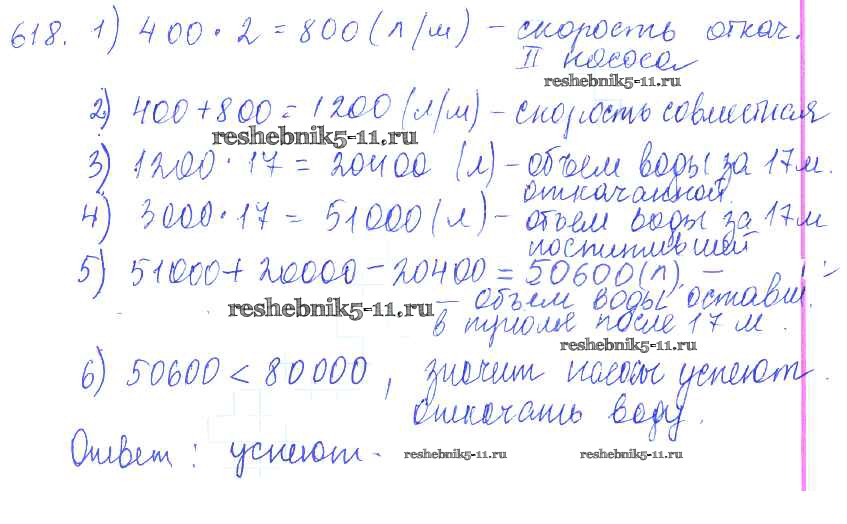 618. 1) 400 · 2 = 800 (л/м) – скорость откач.
II насоса
reshebnik5-11.ru
2) 400 + 800 = 1200 (л/м) – скорость совместная
reshebnik5-11.ru
3) 1200 · 17 = 20400 (л) – объем воды за 17 м.
откачанной.
4) 3000 · 17 = 51000 (л) – объем воды за 17 м
поступившей
5) 51000 + 20000 – 20400 = 50600 (л), –
– объем воды, оставш.
reshebnik5-11.ru
в трюме после 17 м.
reshebnik5-11.ru
6) 50600 < 80000, значит насосы успеют
откачать воду.
Ответ: успеют.
reshebnik5-11.ru reshebnik5-11.ru